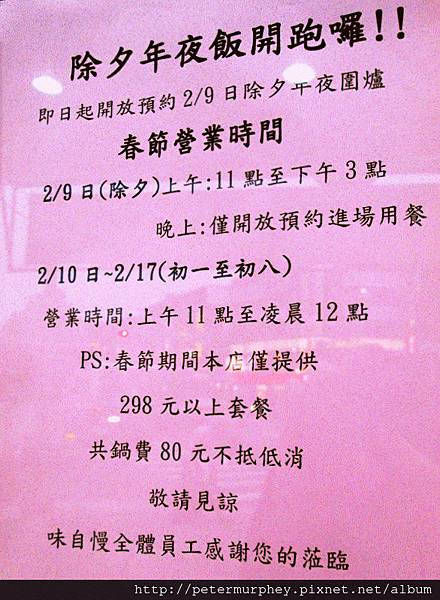 除夕年夜飯開跑囉!!
即日起開放預約 2/9 日除夕年夜圍爐
春節營業時間
2/9 日(除夕)上午:11 點至下午 3 點
晚上:僅開放預約進場用餐
2/10 日~2/17(初一至初八)
營業時間:上午 11 點至凌晨 12 點
PS:春節期間本店僅提供
298 元以上套餐
共鍋費 80 元不抵低消
敬請見諒
味自慢全體員工感謝您的蒞臨
http://petermurphey.pixnet.net/album